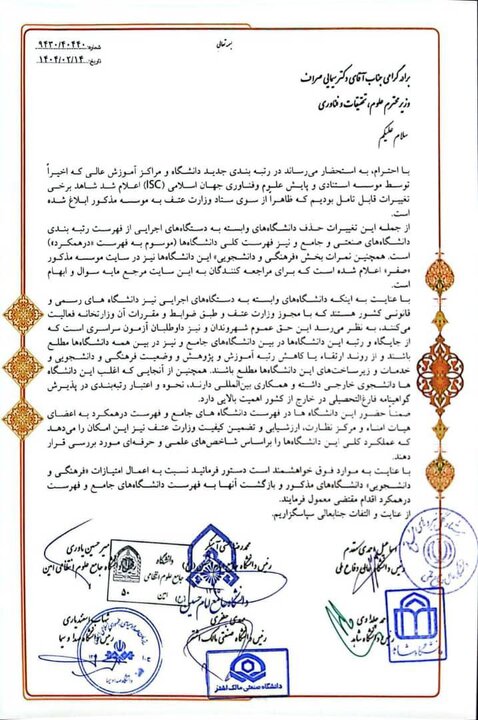 بسمه تعالی
شماره: ۹۴۳۰/۴۰۴۴۰
تاریخ: ۱۴۰۴/۰۲/۱۴
برادر گرامی جناب آقای دکتر سیمایی صراف
وزیر محترم علوم، تحقیقات و فناوری
سلام علیکم
با احترام، به استحضار می‌رساند در رتبه بندی جدید دانشگاه و مراکز آموزش عالی که اخیراً
توسط موسسه استنادی و پایش علوم وفناوری جهان اسلامی (ISC) اعلام شد شاهد برخی
تغییرات قابل تامل بودیم که ظاهراً از سوی ستاد وزارت عتـف به موسسه مذکور ابلاغ شده
است.
از جمله این تغییرات حذف دانشگاه‌های وابسته به دستگاه‌های اجرایی از فهرست رتبه بندی
دانشگاه‌های صنعتی و جامع و نیز فهرست کلی دانشگاه‌ها (موسوم به فهرست «درهمکرد»)
است. همچنین نمرات بخش «فرهنگی و دانشجویی» این دانشگاه‌ها نیز در سایت موسسه مذکور
«صفر» اعلام شده است که برای مراجعه کنندگان به این سایت مرجع مایه سوال و ابهام
است.
با عنایت به اینکه دانشگاه‌های وابسته به دستگاه‌های اجرایی نیز دانشگاه های رسمی و
قانونی کشور هستند که با مجوز وزارت عتف و طبق ضوابط و مقررات آن وزارتخانه فعالیت
می‌کنند، به نظر می‌رسد این حق عموم شهروندان و نیز داوطلبان آزمون سراسری است که
از جایگاه و رتبه این دانشگاه‌ها در بین دانشگاه‌های جامع و نیز در بین همه دانشگاه‌ها مطلع
باشند و از روند ارتقاء یا کاهش رتبه آموزش و پژوهش و وضعیت فرهنگی و دانشجویی و
خدمات و زیرساخت‌های این دانشگاه‌ها مطلع باشند. همچنین از آنجایی که اغلب این دانشگاه
ها دانشجوی خارجی داشته و همکاری بین‌المللی دارند، نحوه و اعتبار رتبه‌بندی در پذیرش
گواهینامه فارغ‌التحصیلی در خارج از کشور اهمیت بالایی دارد.
ضمنا حضور این دانشگاه ها در فهرست دانشگاه های جامع و فهرست درهمکرد به اعضای
هیات امناء و مرکز نظارت، ارزشیابی و تضمین کیفیت وزارت عتف نیز این امکان را می‌دهد
که عملکرد کلی این دانشگاه‌ها را براساس شاخص‌های علمی و حرفه‌ای مورد بررسی قرار
دهند
با عنایت به موارد فوق خواهشمند است دستور فرمائید نسبت به اعمال امتیازات «فرهنگی و
دانشجویی» دانشگاه‌های مذکور و بازگشت آنها به فهرست دانشگاه‌های جامع و فهرست
درهمکرد اقدام مقتضی معمول فرمایند.
از عنایت و التفات جنابعالی سپاسگزاریم.
اسماعیل احمدی مقدم
رئیس دانشگاه عالی دفاع ملی
محمدرضا
دانشگاه جامع امام حسین
رئیس دانشگاه جامع علوم انتظامی امین
دانشگاه
جامع علوم انتظامی
امین
۵۰
مهدی جعفری
رئیس دانشگاه صنعتی مالک اشتر
رئیس دانشگاه صدا و سیما
رئیس دانشگاه شاهد
دانشگاه شاهد
دانشگاه صنعتی مالک اشتر